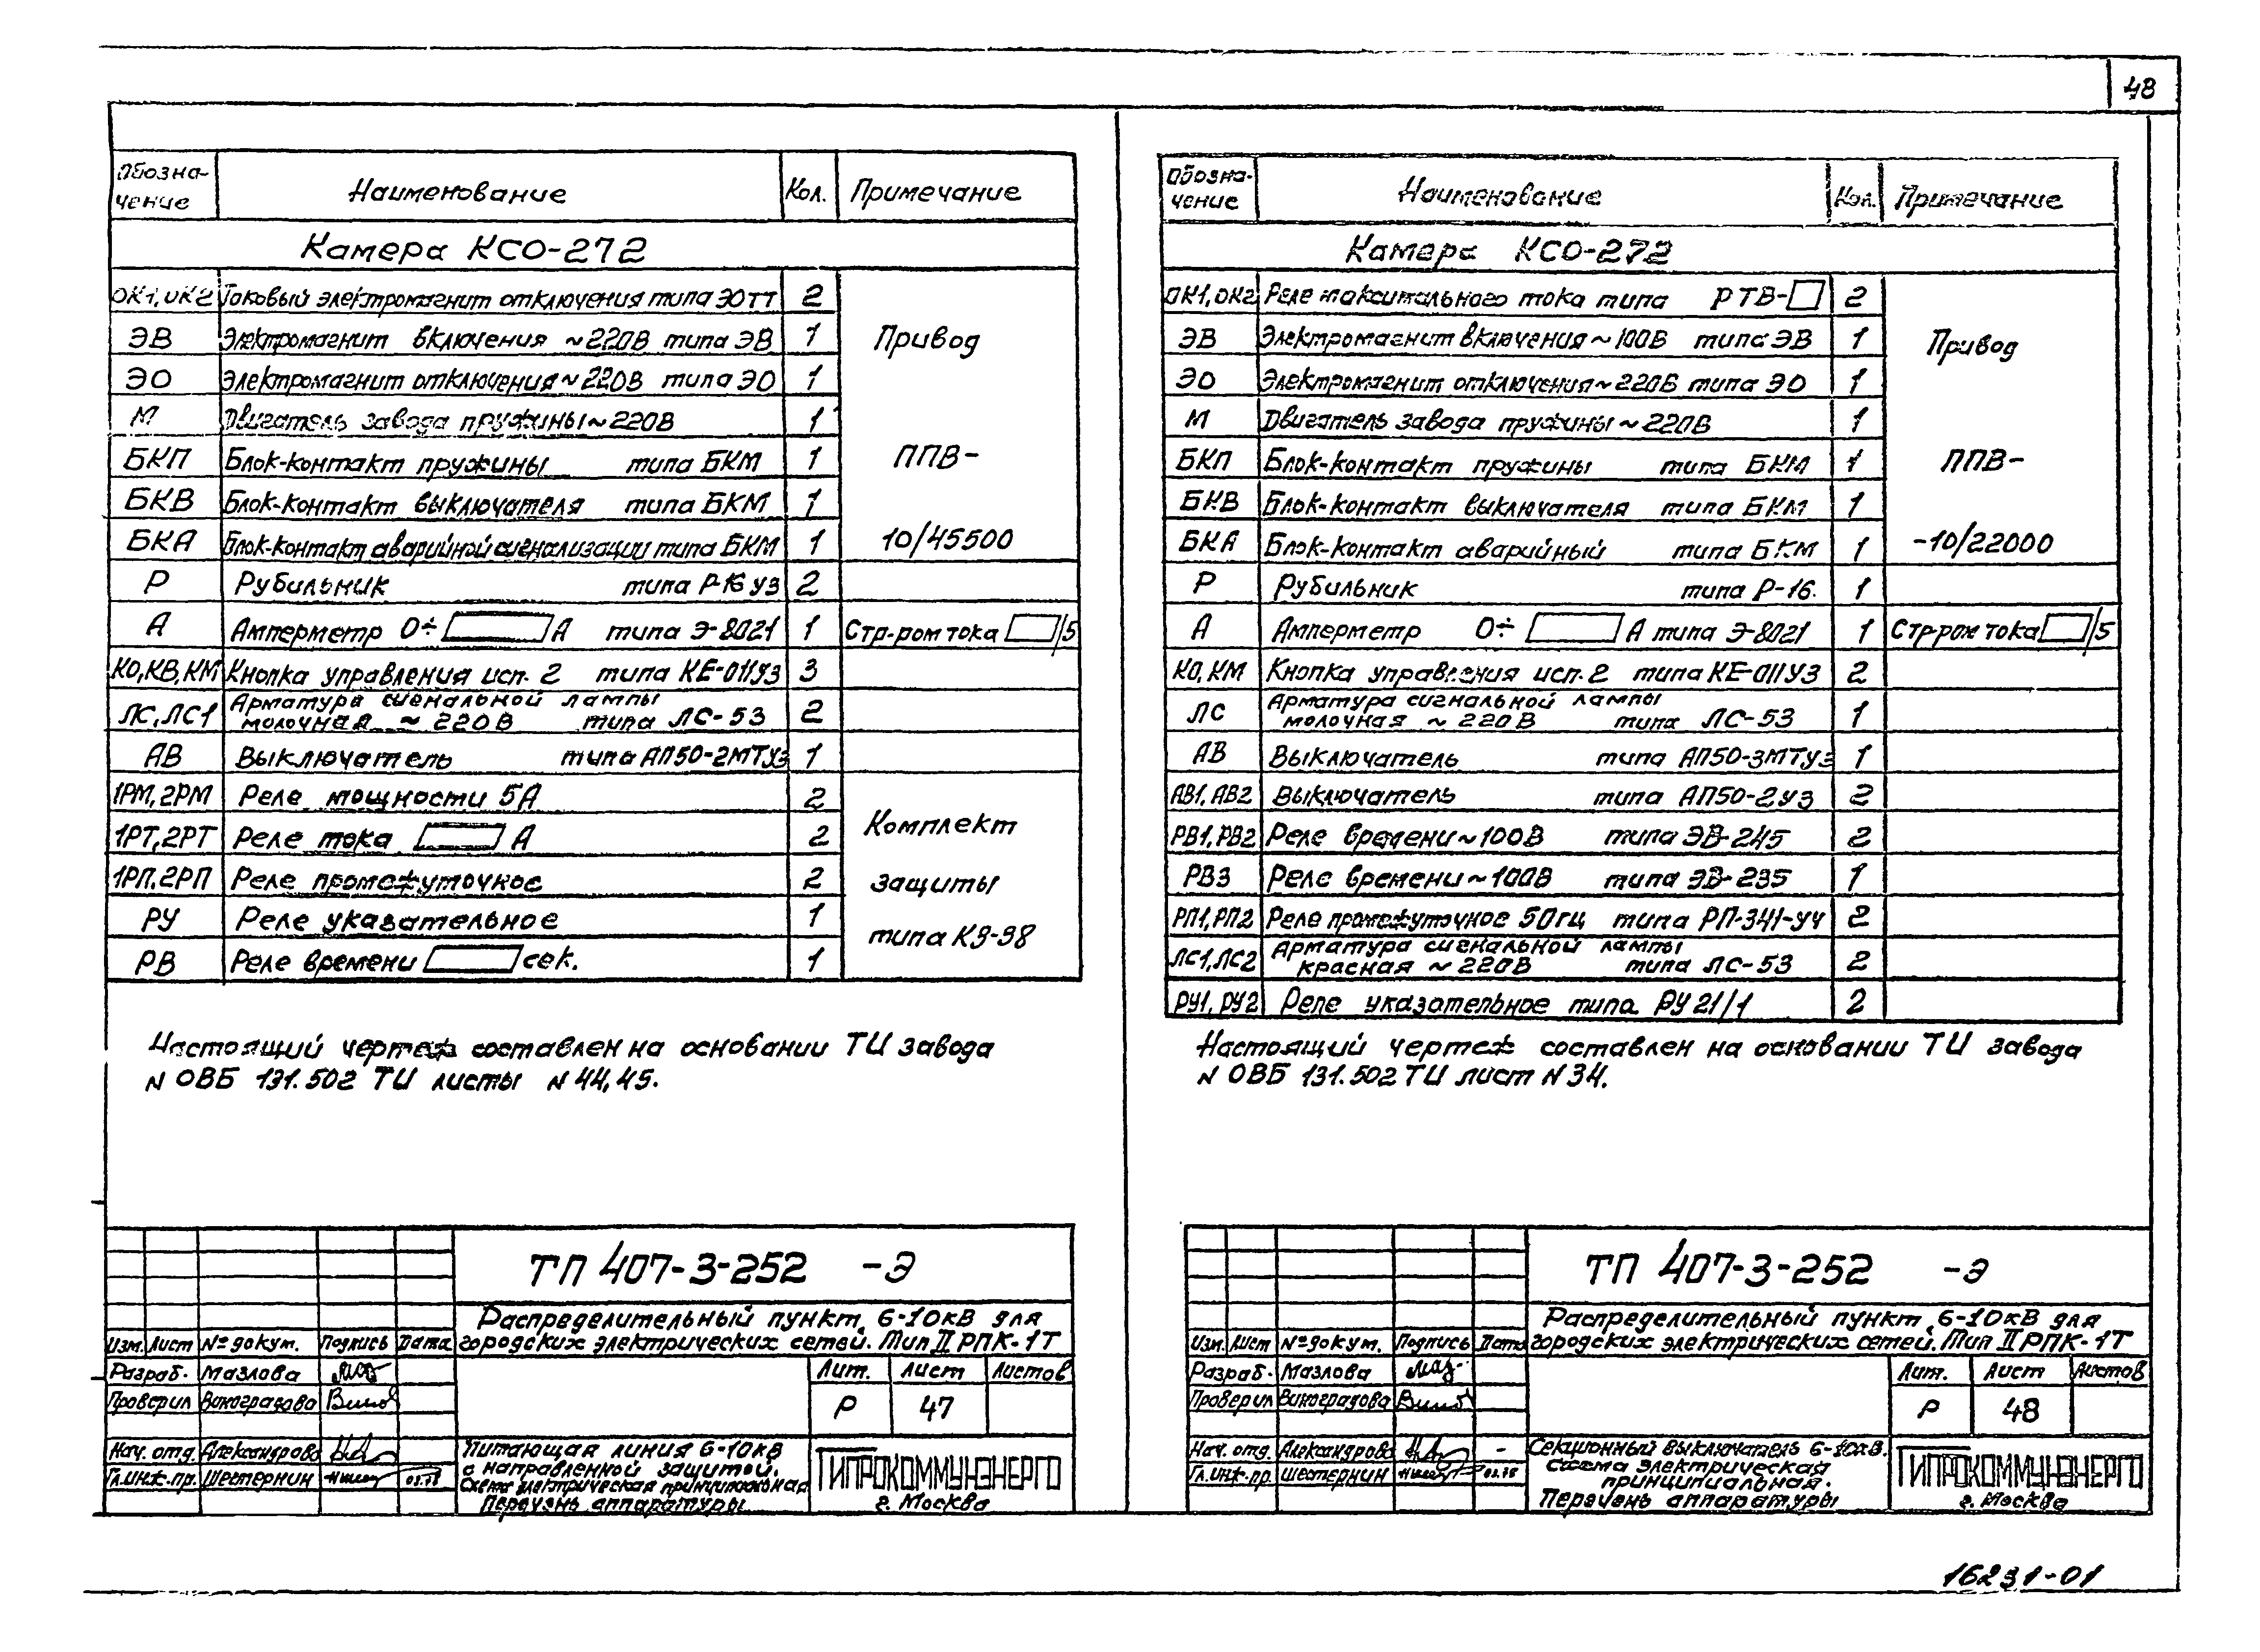 48
Обозна-
чение Наименование Кол. Примечание
Камера КСО-272
ОК1, ОК2 Токовый электромагнит отключения типа ЭОТТ 2
ЭВ Электромагнит включения ~220В типа ЭВ 1 Привод
ЭО Электромагнит отключения ~220В типа ЭО 1
М Двигатель завода пружины ~220В 1
БКП Блок-контакт пружины типа БКМ 1 ППВ-
БКВ Блок-контакт выключателя типа БКМ 1
БКА Блок-контакт аварийной сигнализации типа БКМ 1 10/45500
Р Рубильник типа Р-16 У3 2
А Амперметр 0÷ А типа Э-8021 1 Стр-ром тока /5
КО, КВ, КМ Кнопка управления исп. 2 типа КЕ-011У3 3
ЛС, ЛС1 Арматура сигнальной лампы
молочная ~ 220В типа ЛС-53 2
АВ Выключатель типа АП50-2МТУ3 1
1РМ, 2РМ Реле мощности 5А 2
1РТ, 2РТ Реле тока А 2 Комплект
1РП, 2РП Реле промежуточное 2 защиты
РУ Реле указательное 1
типа КЗ-38
РВ Реле времени сек. 1
Настоящий чертеж составлен на основании ТИ завода
N ОВБ 131.502 ТИ листы N 44, 45.
ТП 407-3-252 -Э
Распределительный пункт 6-10кВ для
городских электрических сетей. Тип II РПК-1Т
Изм. Лист № докум. Подпись Дата
Разраб. Мазлова
Проверил Виноградова
Нач. отд. Александрова
Гл. инж. пр. Шестернин 03.78
Лит. Лист Листов
Р 47
Питающая линия 6-10кВ
с направленной защитой.
Схема электрическая принципиальная
Перечень аппаратуры
ГИПРОКОММУНЭНЕРГО
г. Москва
Обозна-
чение Наименование Кол. Примечание
Камера КСО-272
ОК1, ОК2 Реле максимального тока типа РТВ- 2
ЭВ Электромагнит включения ~100В типа ЭВ 1 Привод
ЭО Электромагнит отключения ~220В типа ЭО 1
М Двигатель завода пружины ~220В 1
БКП Блок-контакт пружины типа БКМ 1 ППВ-
БКВ Блок-контакт выключателя типа БКМ 1
БКА Блок-контакт аварийный типа БКМ 1 -10/22000
Р Рубильник типа Р-16. 1
А Амперметр 0÷ А типа Э-8021 1 Стр-ром тока /5
КО, КМ Кнопка управления исп. 2 типа КЕ-011У3 2
ЛС Арматура сигнальной лампы
молочная ~ 220В типа ЛС-53 1
АВ Выключатель типа АП50-3МТУ3 1
АВ1, АВ2 Выключатель типа АП50-2У3 2
РВ1, РВ2 Реле времени ~100В типа ЭВ-245 2
РВ3 Реле времени ~100В типа ЭВ-235 1
РП1, РП2 Реле промежуточное 50гц типа РП-341-У4 2
ЛС1, ЛС2 Арматура сигнальной лампы
красная ~ 220В типа ЛС-53 2
РУ1, РУ2 Реле указательное типа РУ 21/1 2
Настоящий чертеж составлен на основании ТИ завода
N ОВБ 131.502 ТИ лист N 34.
ТП 407-3-252 -Э
Распределительный пункт 6-10кВ для
городских электрических сетей. Тип II РПК-1Т
Изм. Лист № докум. Подпись Дата
Разраб. Мазлова
Проверил Виноградова
Нач. отд. Александрова
Гл. инж. пр. Шестернин 03.78
Лит. Лист Листов
Р 48
Секционный выключатель 6-10кВ.
Схема электрическая
принципиальная.
Перечень аппаратуры
ГИПРОКОММУНЭНЕРГО
г. Москва
16231-01